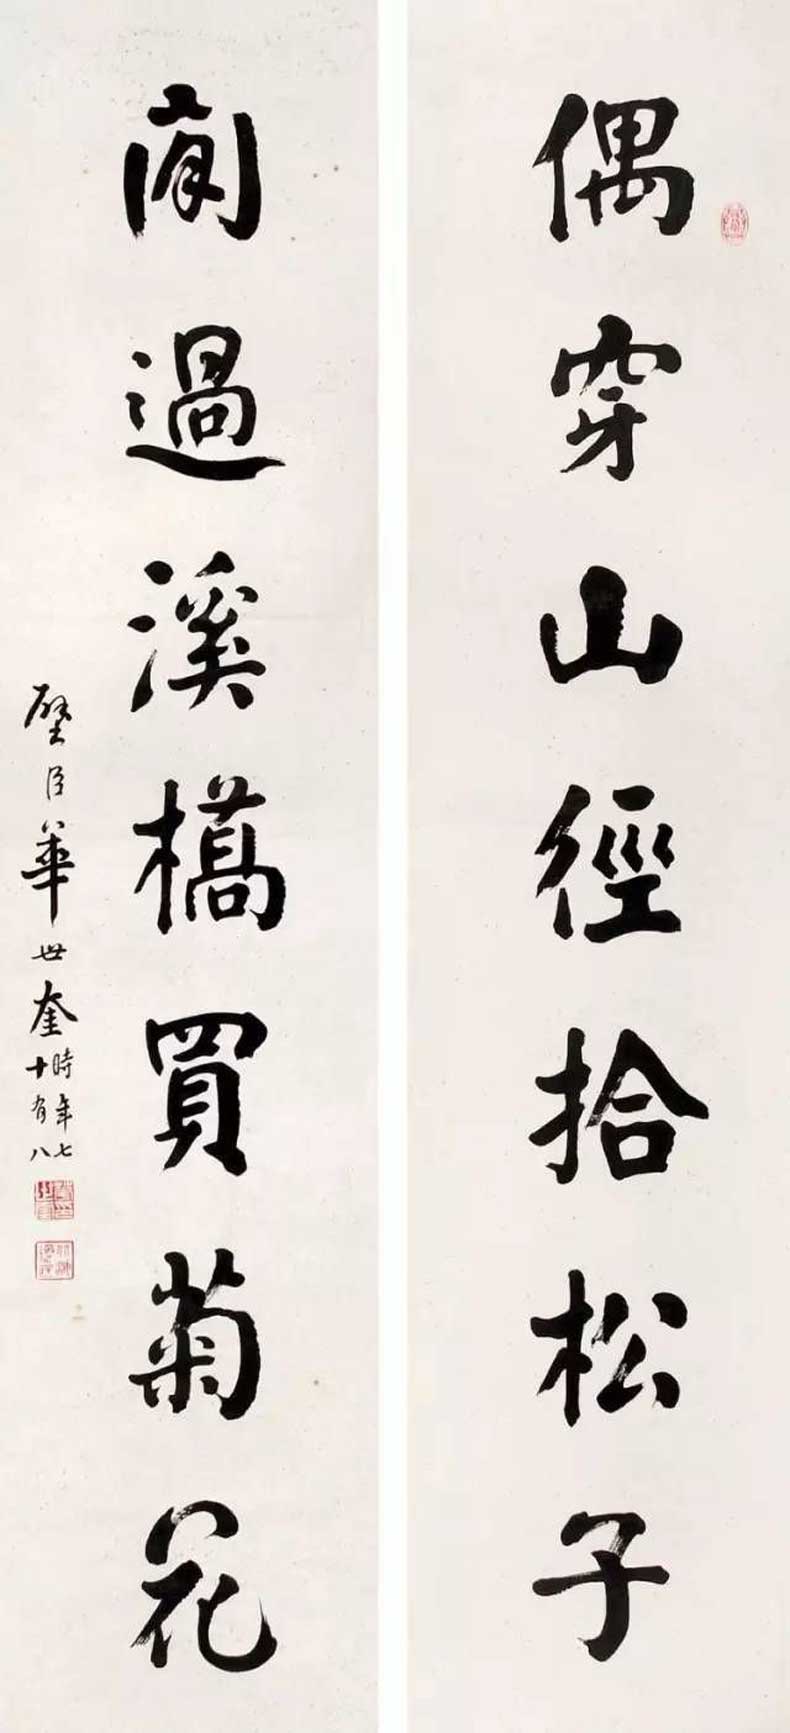 偶穿山徑拾松子
閒過溪橋買菊花
璧臣華世奎時年七十有八